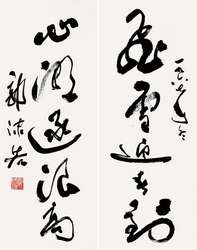 飛雪迎春到
心潮逐浪高
郭沫若